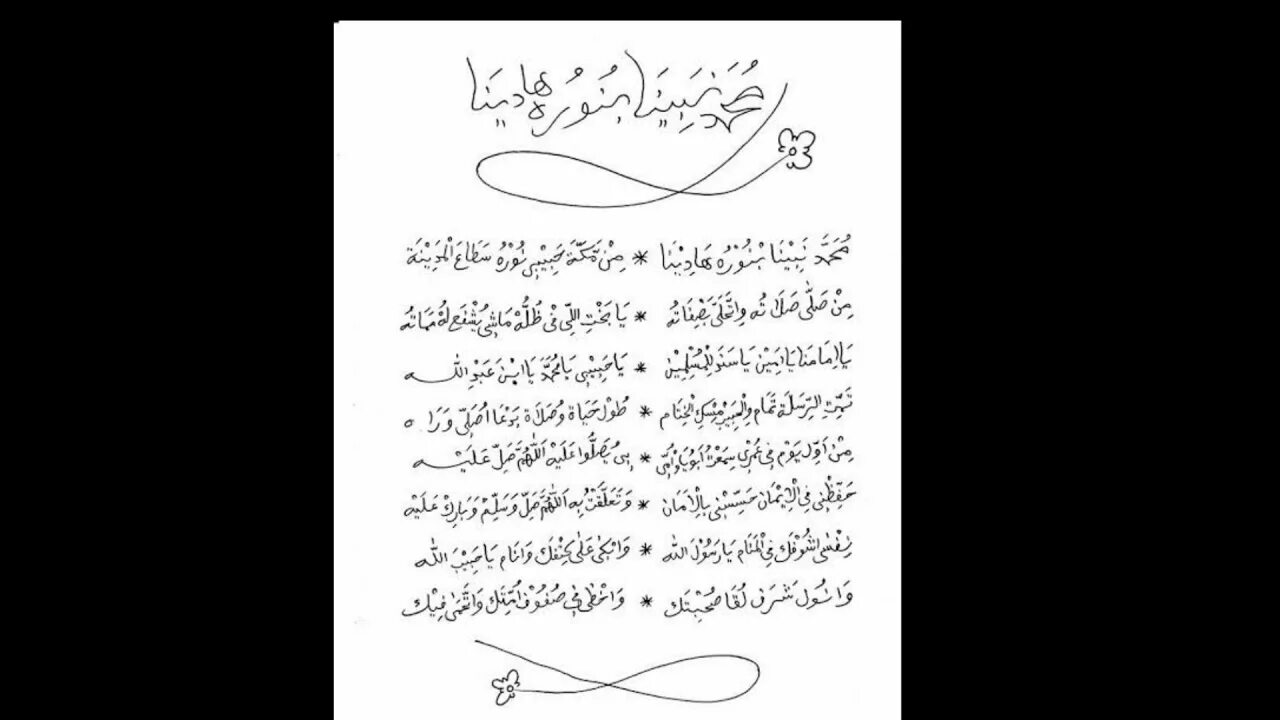 مُحَمَّد نَبِيْنَا بْنُوْرُه هَادِيْنَا
مُحَمَّد نَبِيْنَا بْنُوْرُه هَادِيْنَا * مِنْ مَكَّة حَبِيْبِي نُوْرُه سَطَاعَ الْمَدِيْنَة
مِنْ صَلَّى صَلَاتُه وِاتْحَلَّى بَصْفَاتُه * يَا بَخْتِ اللِّي فْي ظُلُّه مَاشِي يُشْفَع لُهْ مَمَاتُه
يَا اِمَامَنا يَا اَمِيْن يَا سَنَد لِلْمُسْلِمِيْن * يَا حَبِيْبِي يَا مُحَمَّد يَا ابْن عَبْدِ الله
تَمِّتِ الرِّسَلَة تَمَام وِالْعَبِيْر مِسْكِ الْخِتَام * طُوْل حَيَاة وُصَلَاة اُصَلِّي وَرَاه
مِنْ اَوِّل يَوْم فِي عُمْرِي سِمَعْت اَبُوْيَا وْاُمِّي * بِيُصَلُّوا عَلَيْه اَللّٰهُمَّ صَلِّ عَلَيْه
حَفِّظْنِي فِي الْاِيْمَان حَسِّسْنِي بِالْاَمَان * وَتَعَلَّقْتُ بِه اَللّٰهُمَّ صَلِّ وَسَلِّمْ وَبَارِكْ عَلَيْه
نِفْسِي اشُوْفَك فِي الْمَنَام يَا رَسُوْلَ الله * وَابْكِى عَلَى كِتْفِك وَانَام يَا حَبِيْبَ الله
وَانُول شَرَف لُقَا صُحْبِتَك * وَاخْطِى فِي صُفُوْف اُمِّتِك وَاتْحَمَى فِيْك